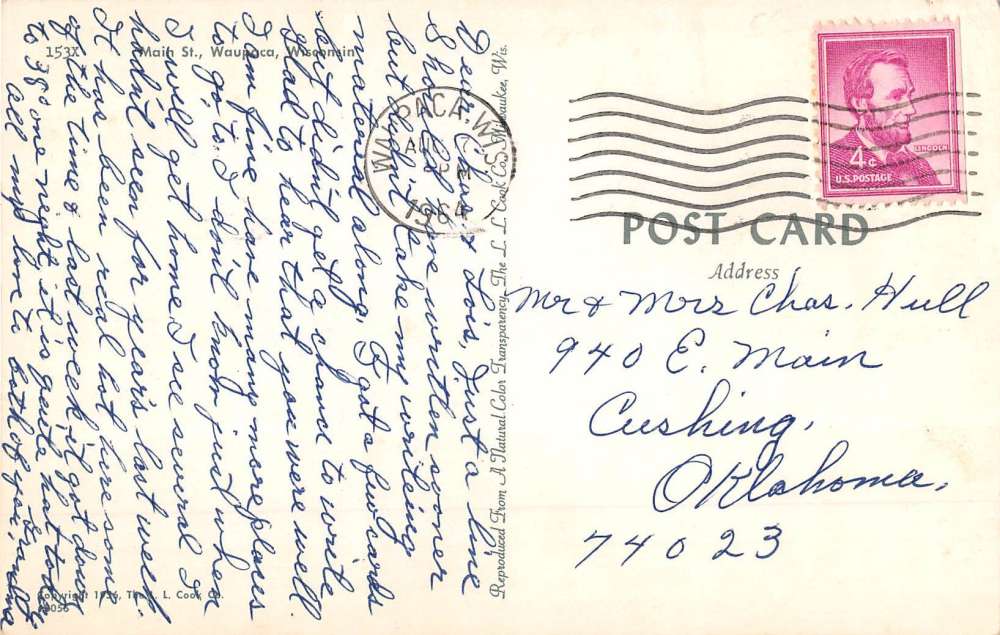 153X Main St., Waupaca, Wisconsin
Dear Chas & Lois, Just a line
Should of have written sooner
but hadn't take my writeing
mateereal along. I got a few cards
but didn't get a chand to write
glad to hear that you were well.
I am fine have many more places
to go to. I don't know just when
I will get home. I see several I
hadn't seen for years last week.
It has been real hot here some
of the time & last week it got down
to 38° one night, it is quite hot today
all my love to both of you, Grandma
Copyright 1956, The L. L. Cook Co.
Reproduced From A Natural Color Transparency, The L. L. Cook Co., Milwaukee, Wis.
WAUPACA, WIS.
AUG
1964
LINCOLN
4¢
U.S. POSTAGE
POST CARD
Address
Mr & Mrs Chas. Hull
940 E. Main
Cushing,
Oklahoma,
74023